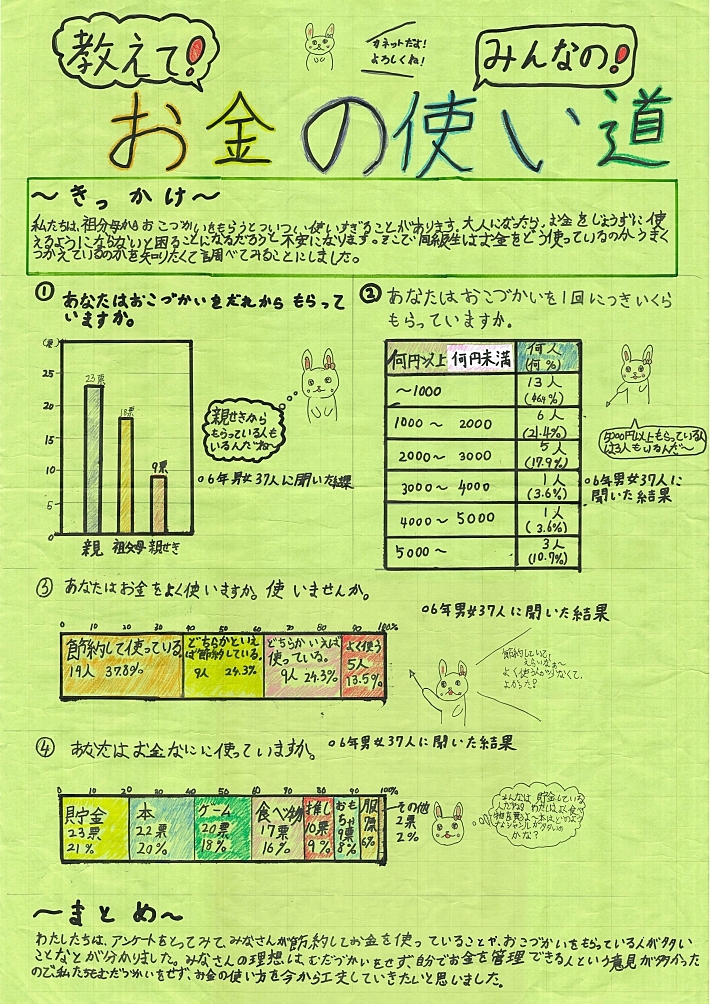 教えて!
カネットだよ!
よろしくね!
みんなの!
お金の使い道
～きっかけ～
私たちは、祖父母からおこづかいをもらうとついつい使いすぎることがあります。大人になったら、お金をじょうずに使
えるようにならないと困ることになるだろうと不安になります。そこで同級生はお金をどう使っているのか、うまく
つかえているのかを知りたくて調べてみることにしました。
① あなたはおこづかいをだれからもらって
いますか。
(票)
25
20
15
10
5
0
23票
18票
9票
親 祖父母 親せき
親せきから
もらっている人も
いるんだね～
○6年男女37人に聞いた結果
② あなたはおこづかいを1回につきいくら
もらっていますか。
何円以上 何円未満 何人(何%)
～1000 13人(46.4%)
1000～2000 6人(21.4%)
2000～3000 5人(17.9%)
3000～4000 1人(3.6%)
4000～5000 1人(3.6%)
5000～ 3人(10.7%)
5000円以上もらっている人
は3人もいるんだ～
○6年男女37人に
聞いた結果
③ あなたはお金をよく使いますか。使いませんか。
○6年男女37人に聞いた結果
0 10 20 30 40 50 60 70 80 90 100%
節約して使っている
14人 37.8%
どちらかといえ
ば節約している。
9人 24.3%
どちらかいえば
使っている。
9人 24.3%
よく使う
5人
13.5%
節約していて、
えらいなぁ～
よく使う人が少なくて、
よかった?
④ あなたはお金なにに使っていますか。
○6年男女37人に聞いた結果
0 10 20 30 40 50 60 70 80 90 100%
貯金
23票
21%
本
22票
20%
ゲーム
20票
18%
食べ物
17票
16%
推し
10票
9%
おもちゃ
9票
8%
服
6%
その他
2票
2%
みんなは貯金している
かな?
～まとめ～
わたしたちは、アンケートをとってみて、みなさんが節約してお金を使っていることや、おこづかいをもらっている人が多い
ことなどが分かりました。みなさんの理想は、むだづかいをせず、自分でお金を管理できる人という意見が多かった
ので私たちもむだづかいをせず、お金の使い方を今から工夫していきたいと思いました。